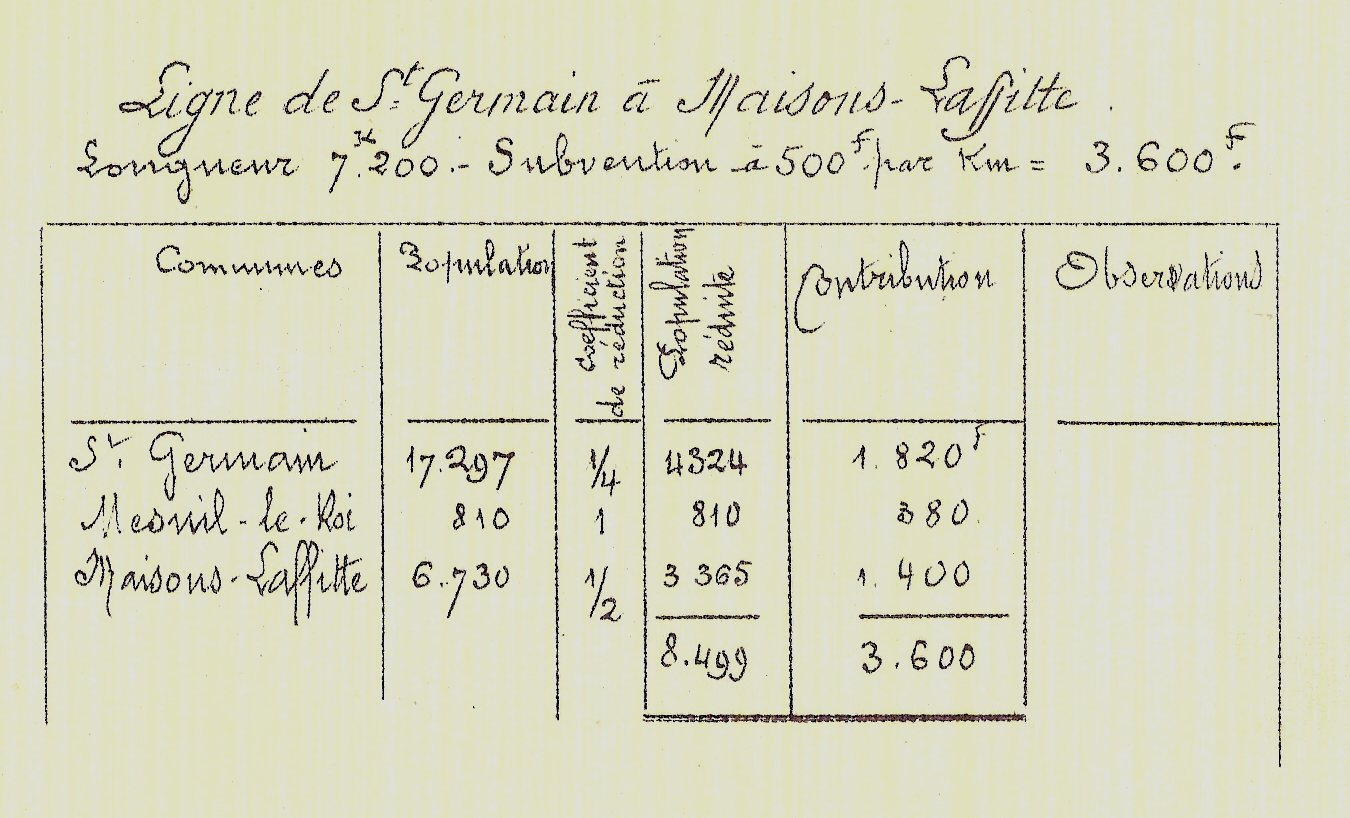 Ligne de St. Germain à Maisons-Laffitte.
Longueur 7K.200.- Subvention à 500F. par Km = 3.600F.
Communes Population Coefficient de réduction Population réduite Contribution Observations
St. Germain 17.297 1/4 4324 1.820F
Mesnil-le-Roi 810 1 810 380
Maisons-Laffitte 6.730 1/2 3 365 1.400
8.499 3.600